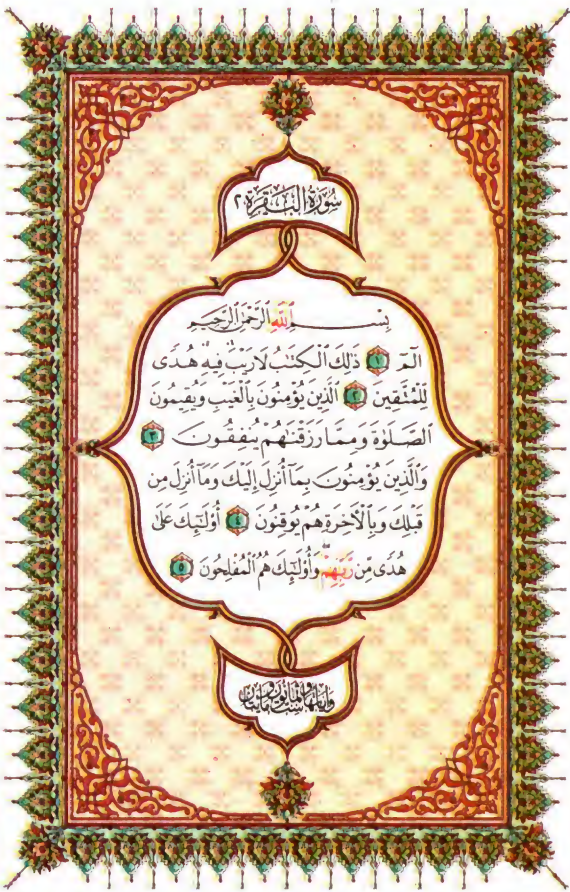 سُورَةُ البَقَرَةِ ٢
بِسْمِ ٱللَّهِ ٱلرَّحْمَٰنِ ٱلرَّحِيمِ
الٓمٓ ١ ذَٰلِكَ ٱلْكِتَٰبُ لَا رَيْبَ ۛ فِيهِ ۛ هُدًى
لِّلْمُتَّقِينَ ٢ ٱلَّذِينَ يُؤْمِنُونَ بِٱلْغَيْبِ وَيُقِيمُونَ
ٱلصَّلَوٰةَ وَمِمَّا رَزَقْنَٰهُمْ يُنفِقُونَ ٣
وَٱلَّذِينَ يُؤْمِنُونَ بِمَآ أُنزِلَ إِلَيْكَ وَمَآ أُنزِلَ مِن
قَبْلِكَ وَبِٱلْأَخِرَةِ هُمْ يُوقِنُونَ ٤ أُو۟لَٰٓئِكَ عَلَىٰ
هُدًى مِّن رَّبِّهِمْ ۖ وَأُو۟لَٰٓئِكَ هُمُ ٱلْمُفْلِحُونَ ٥
وآياتها ست وثمانون ومايتان